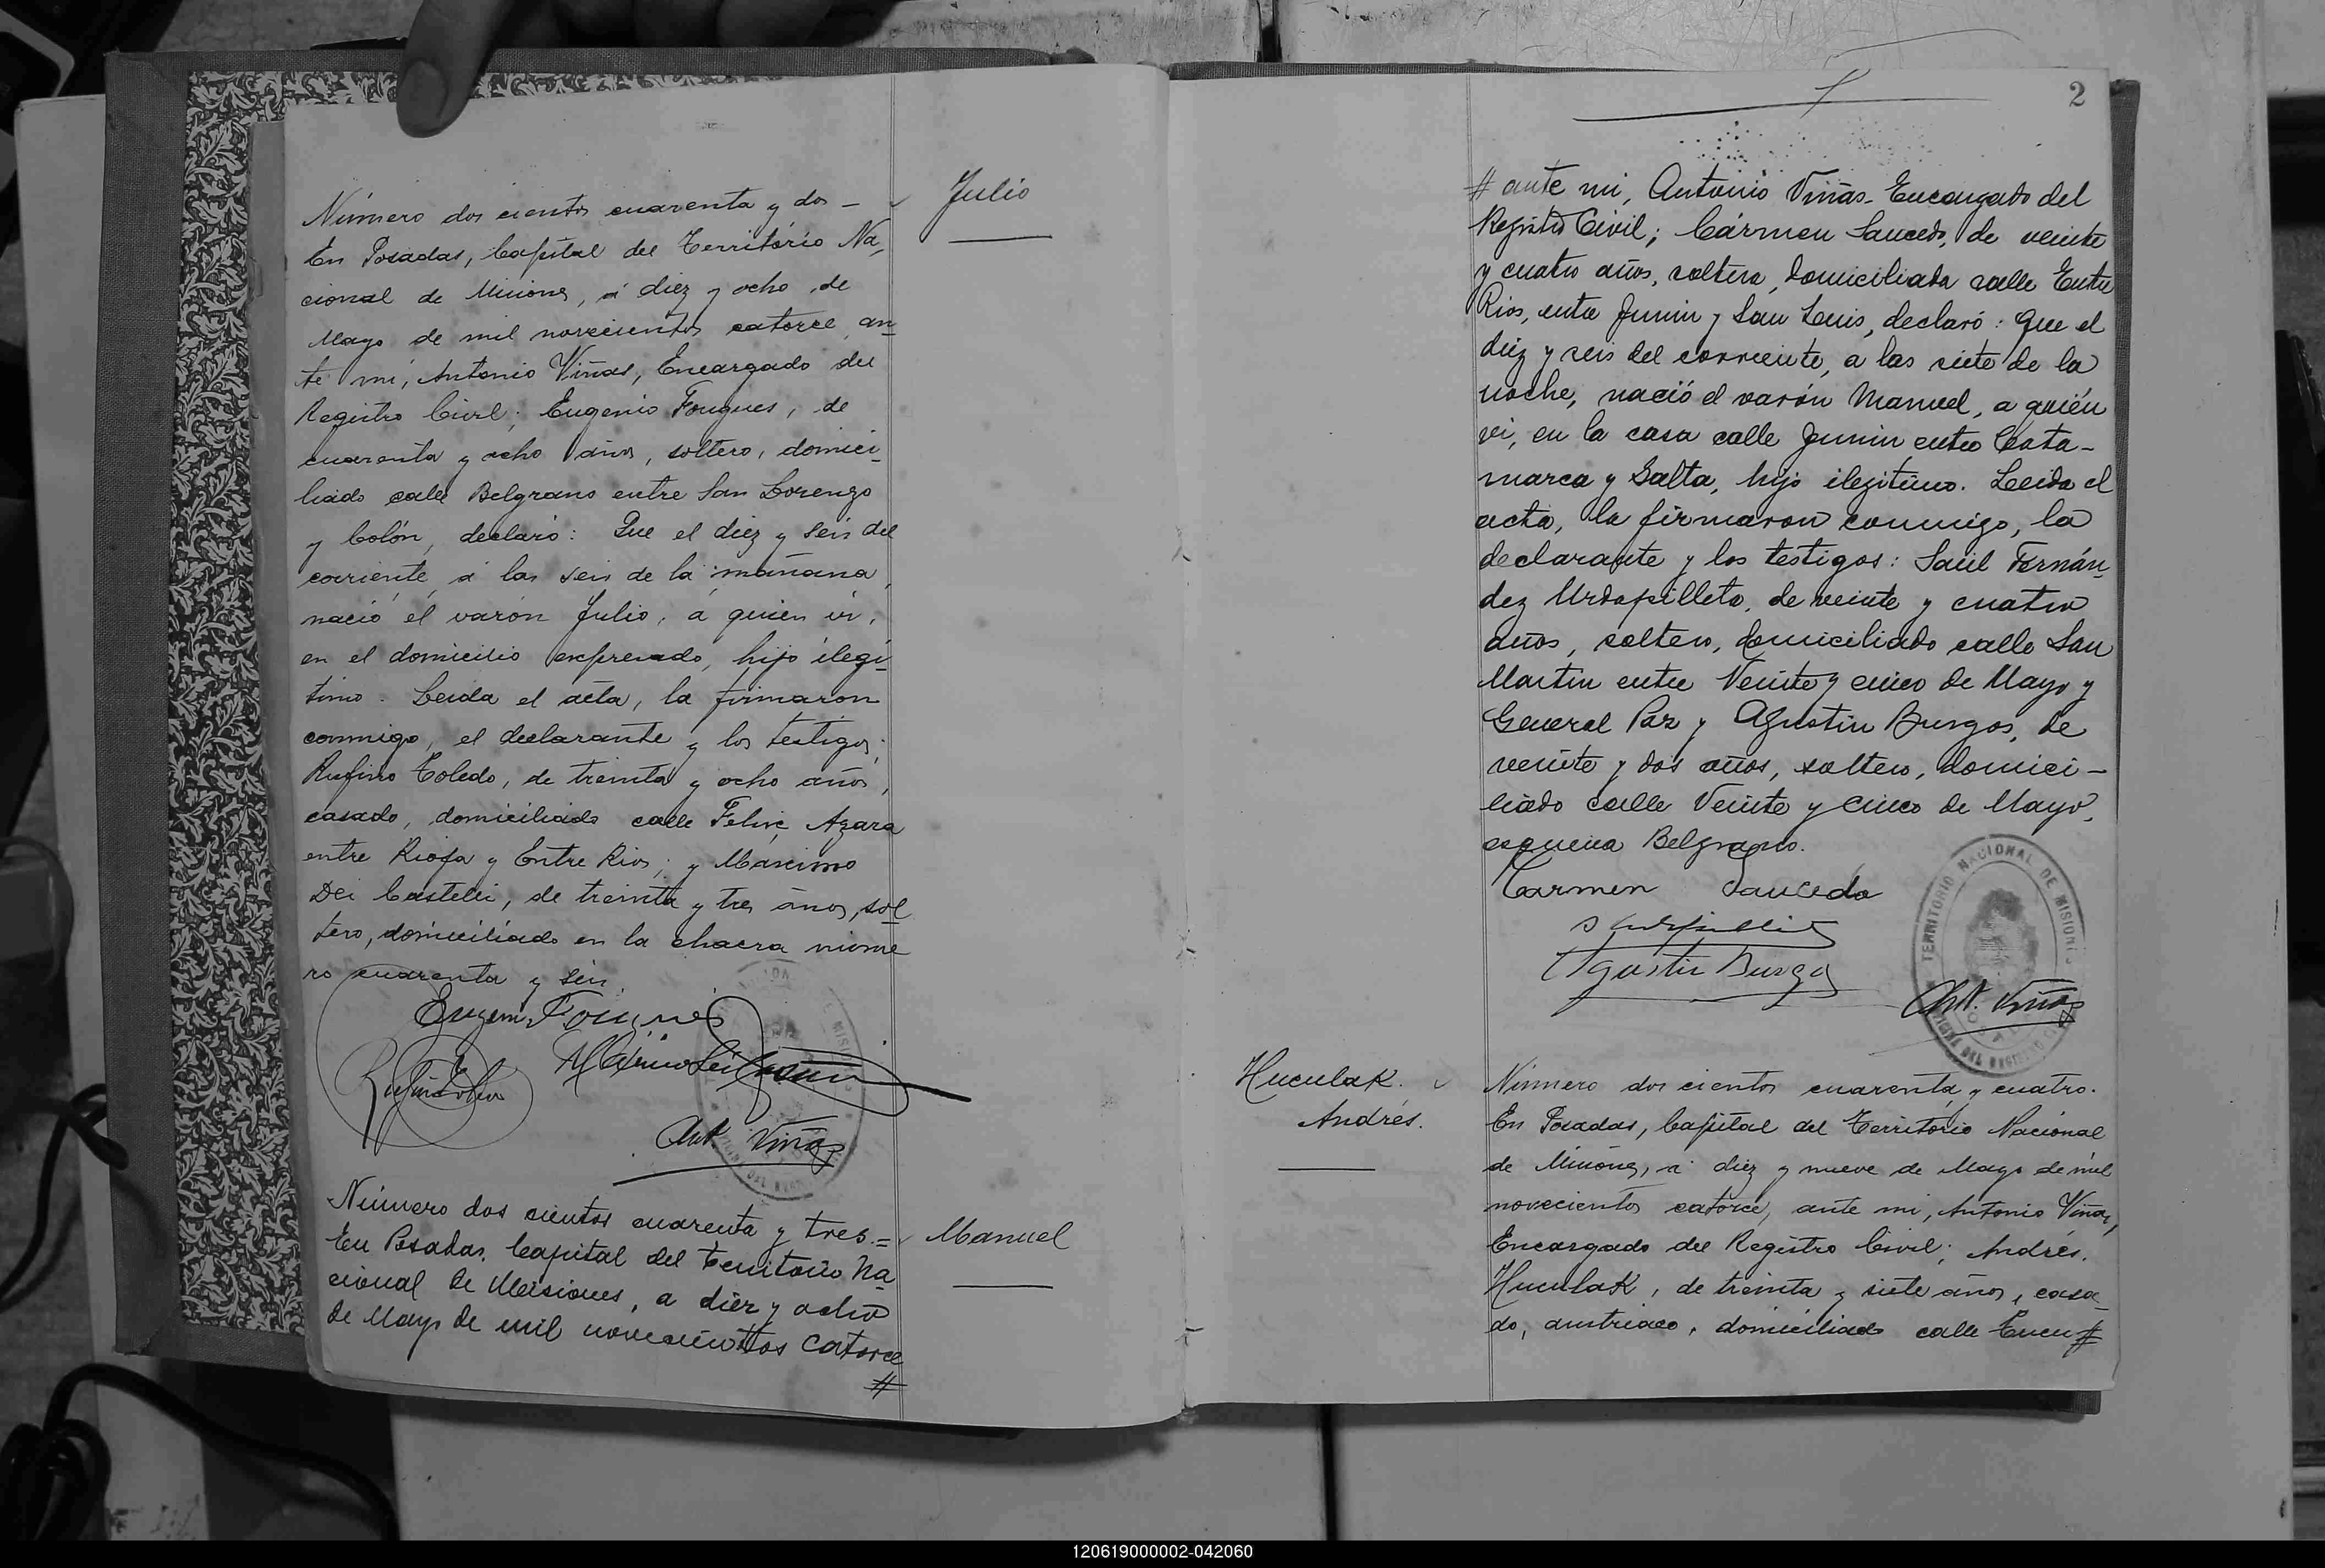 Número dos cientos cuarenta y dos —
Julio
En Posadas, Capital del Territorio Na-
cional de Misiones, á diez y ocho de
Mayo de mil novecientos catorce an-
te mí, Antonio Viñas, Encargado del
Registro Civil; Eugenio Fougues, de
cuarenta y ocho años, soltero, domici-
liado calle Belgrano entre San Lorenzo
y Colón, declaró: Que el diez y seis del
corriente, á las seis de la mañana,
nació el varón Julio, á quien ví,
en el domicilio expresado, hijo ilegí-
timo. Leida el acta, la firmaron
conmigo, el declarante y los testigos:
Rufino Toledo, de treinta y ocho años,
casado, domiciliado calle Felix Azara
entre Rioja y Entre Rios; y Máximo
Dei Castelli, de treinta y tres años, sol-
tero, domiciliado en la chacra núme
ro cuarenta y seis.
Eugenio Fougues
Ant. Viñas
Número dos cientos cuarenta y tres.=
Manuel
En Posadas, Capital del Territorio Na
cional de Misiones, a diez y ocho
de Mayo de mil novecientos catorce
#
2
# ante mi, Antonio Viñas Encargado del
Registro Civil; Cármen Saucedo, de veinte
y cuatro años, soltera, domiciliada calle Entre
Rios, entre Junin y San Luis, declaró: Que el
diez y seis del corriente, a las siete de la
noche, nació el varón Manuel, a quién
vi, en la casa calle Junin entre Cata-
marca y Salta, hijo ilegitimo. Leida el
acta, la firmaron conmigo, la
declarante y los testigos: Saúl Fernán-
dez Urdapilleta, de veinte y cuatro
años, soltero, domiciliado calle San
Martin entre Veinte y cinco de Mayo y
General Paz y Agustin Burgos, de
veinte y dos años, soltero, domici-
liado calle Veinte y cinco de Mayo,
esquina Belgrano.
Carmen Saucedo
Agustin Burgos
TERRITORIO NACIONAL DE MISIONES
Ant. Viñas
Huculak.
Andrés.
Número dos cientos cuarenta y cuatro.
En Posadas, Capital del Territorio Nacional
de Misiones, á diez y nueve de Mayo de mil
novecientos catorce, ante mi, Antonio Viñas,
Encargado del Registro Civil; Andrés.
Huculak, de treinta y siete años, casa-
do, austriaco, domiciliado calle Tucu #
120619000002-042060